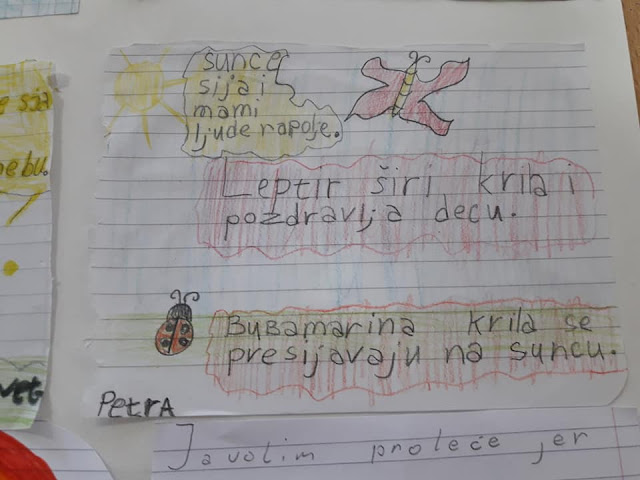 sunce
sija i
mami
ljude napolje.
Leptir širi krila i
pozdravlja decu.
Bubamarina krila se
presijavaju na suncu.
PetrA
Ja volim proleće jer
nebu.